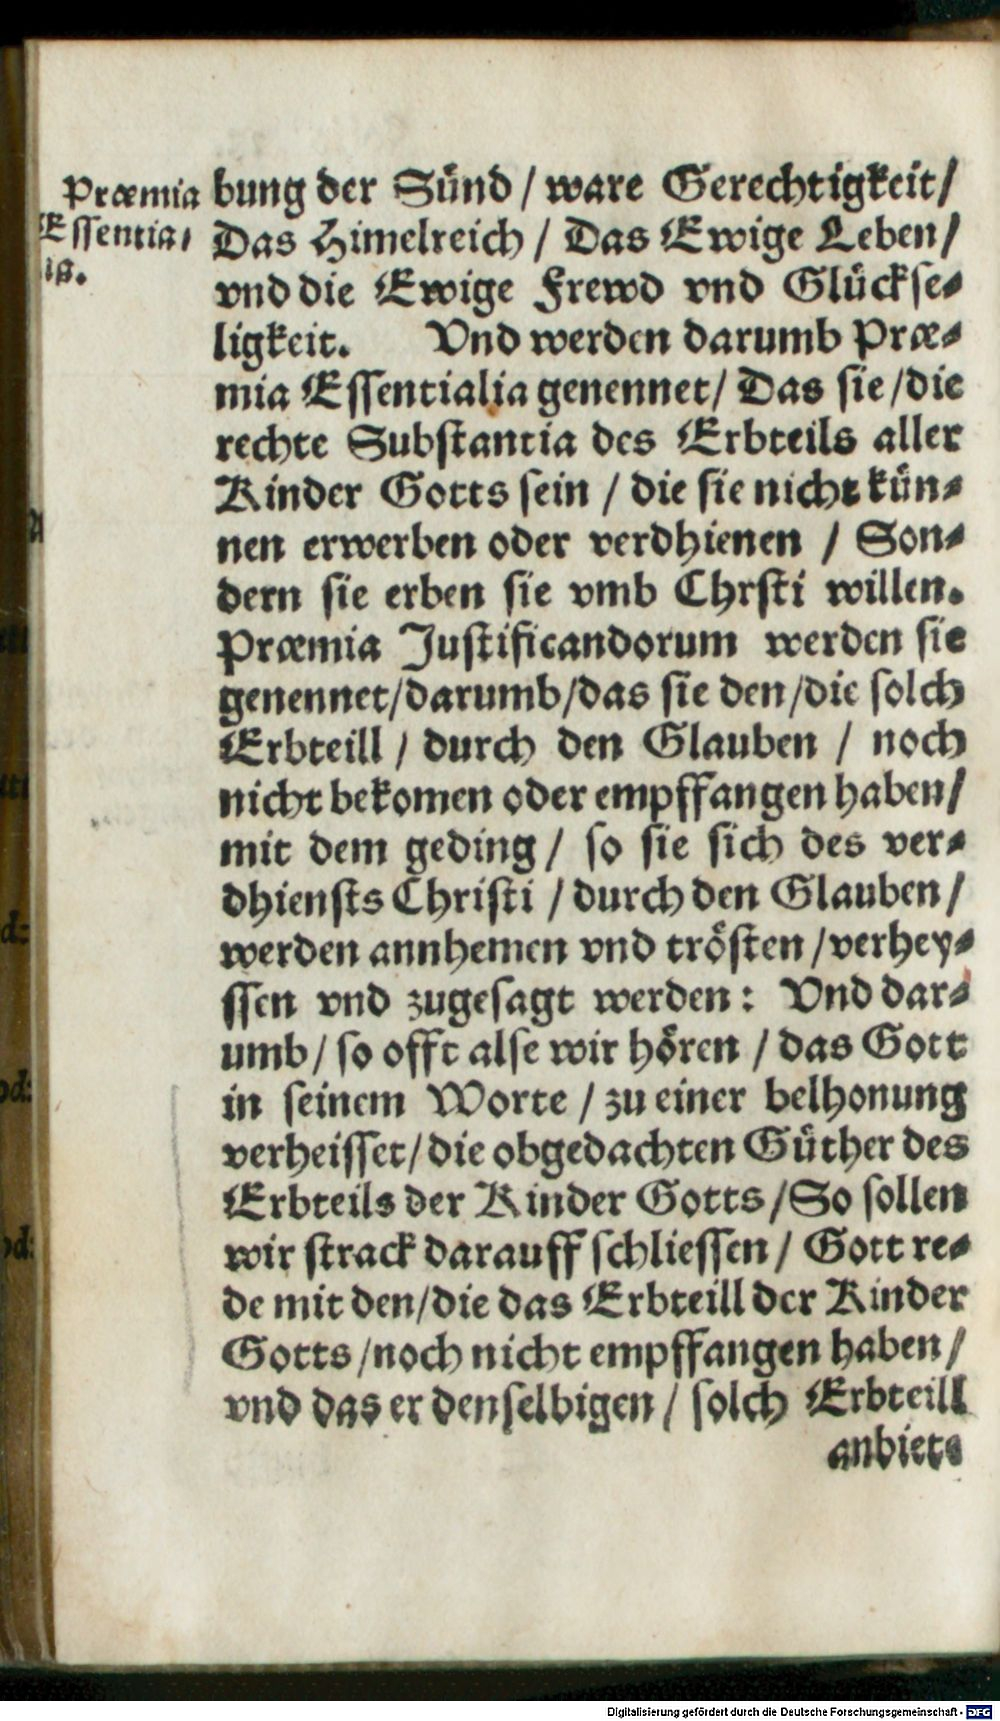 Præmia
Essentia-
lia.
bung der Sünd / ware Gerechtigkeit /
Das Himelreich / Das Ewige Leben /
vnd die Ewige Frewd vnd Glückse-
ligkeit. Vnd werden darumb Præ-
mia Essentialia genennet / Das sie / die
rechte Substantia des Erbteils aller
Kinder Gotts sein / die sie nicht kün-
nen erwerben oder verdhienen / Son-
dern sie erben sie vmb Chrsti willen.
Præmia Justificandorum werden sie
genennet / darumb / das sie den / die solch
Erbteill / durch den Glauben / noch
nicht bekomen oder empffangen haben /
mit dem geding / so sie sich des ver-
dhiensts Christi / durch den Glauben /
werden annhemen vnd trösten / verhey-
ssen vnd zugesagt werden: Vnd dar-
umb / so offt alse wir hören / das Gott
in seinem Worte / zu einer belhonung
verheisset / die obgedachten Güther des
Erbteils der Kinder Gotts / So sollen
wir strack darauff schliessen / Gott re-
de mit den / die das Erbteill der Kinder
Gotts / noch nicht empffangen haben /
vnd das er denselbigen / solch Erbteill
anbiet-
Digitalisierung gefördert durch die Deutsche Forschungsgemeinschaft - DFG